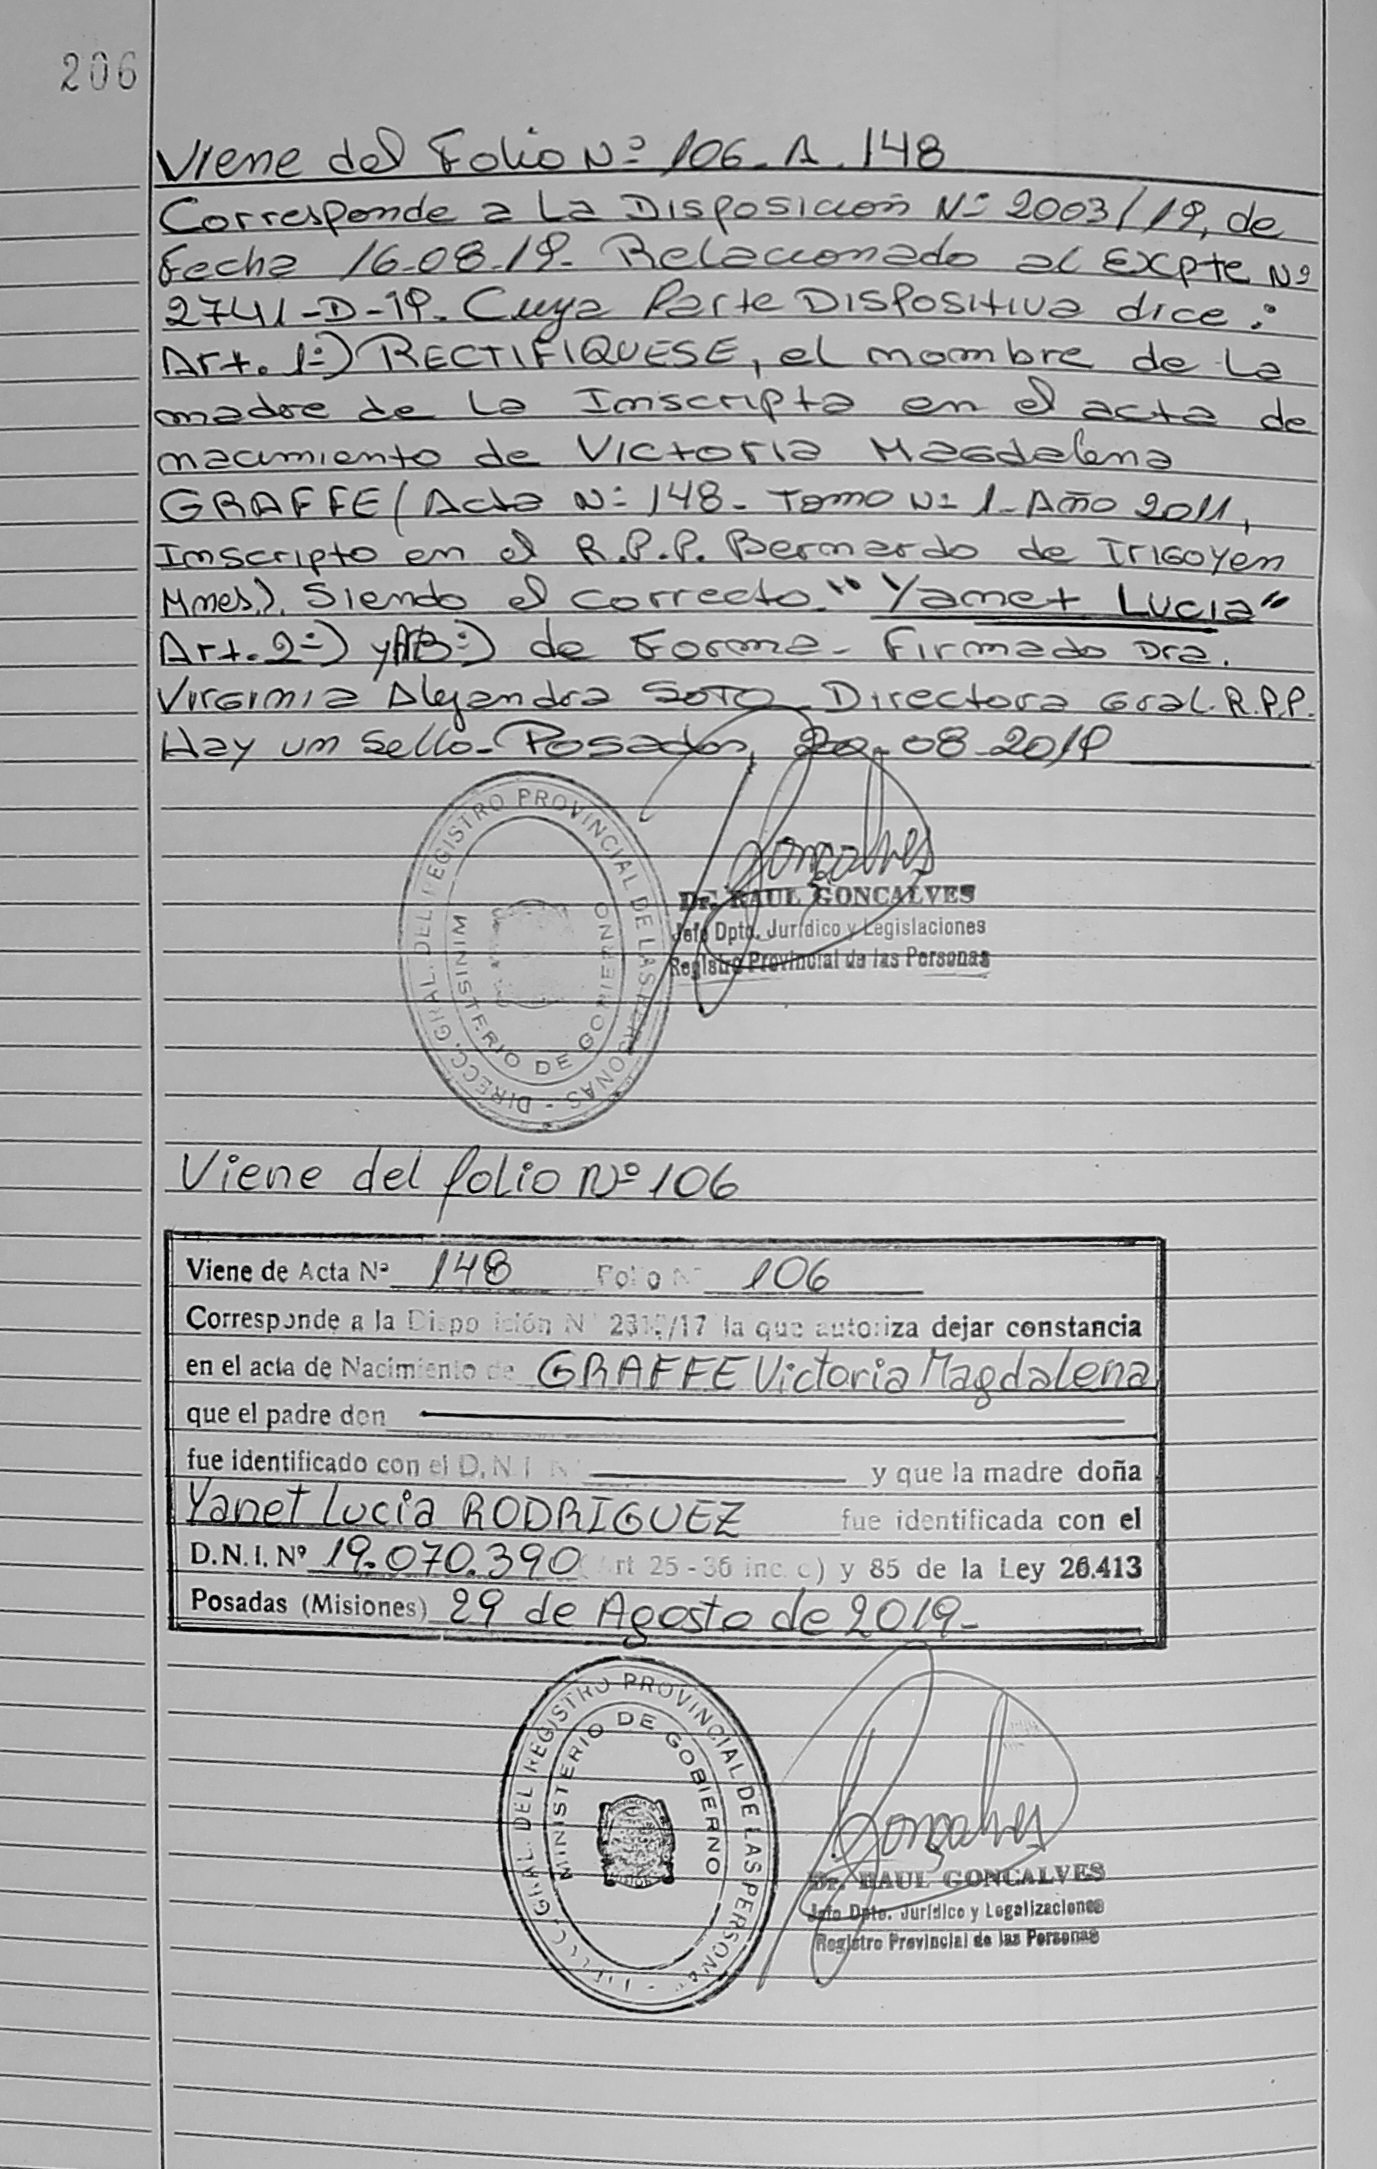 206
Viene del Folio Nº 106 - A. 148
Corresponde a La Disposición Nº 2003/19, de
Fecha 16-08-19- Relacionado al Expte Nº
2741-D-19- Cuya Parte Dispositiva dice:
Art. 1º) RECTIFIQUESE, el nombre de La
madre de La Inscripta en el acta de
nacimiento de Victoria Magdalena
GRAFFE (Acta Nº 148 - Tomo Nº 1 - Año 2011,
Inscripto en el R.P.P. Bernardo de Irigoyen
Mnes.). Siendo el correcto "Yanet Lucia"
Art. 2º) y 3º) de Forma - Firmado Dra.
Virginia Alejandra SOTO - Directora Gral. R.P.P.
Hay un Sello - Posadas, 20-08-2019
DIRECC. GRAL. DEL REGISTRO PROVINCIAL DE LAS PERSONAS -
MINISTERIO DE GOBIERNO
Gonçalves
Dr. RAUL GONCALVES
Jefe Dpto. Jurídico y Legislaciones
Registro Provincial de las Personas
Viene del folio Nº 106
Viene de Acta Nº 148 Folio Nº 106
Corresponde a la Disposición N /17 la que autoriza dejar constancia
en el acta de Nacimiento de GRAFFE Victoria Magdalena
que el padre don
fue identificado con el D.N.I. N y que la madre doña
Yanet Lucia RODRIGUEZ fue identificada con el
D.N.I. Nº 19.070.390 (Art 25 - 36 inc. c) y 85 de la Ley 26.413
Posadas (Misiones) 29 de Agosto de 2019-
GRAL. DEL REGISTRO PROVINCIAL DE LAS PERSONAS -
MINISTERIO DE GOBIERNO
Gonçalves
Dr. RAUL GONCALVES
Jefe Dpto. Jurídico y Legalizaciones
Registro Provincial de las Personas